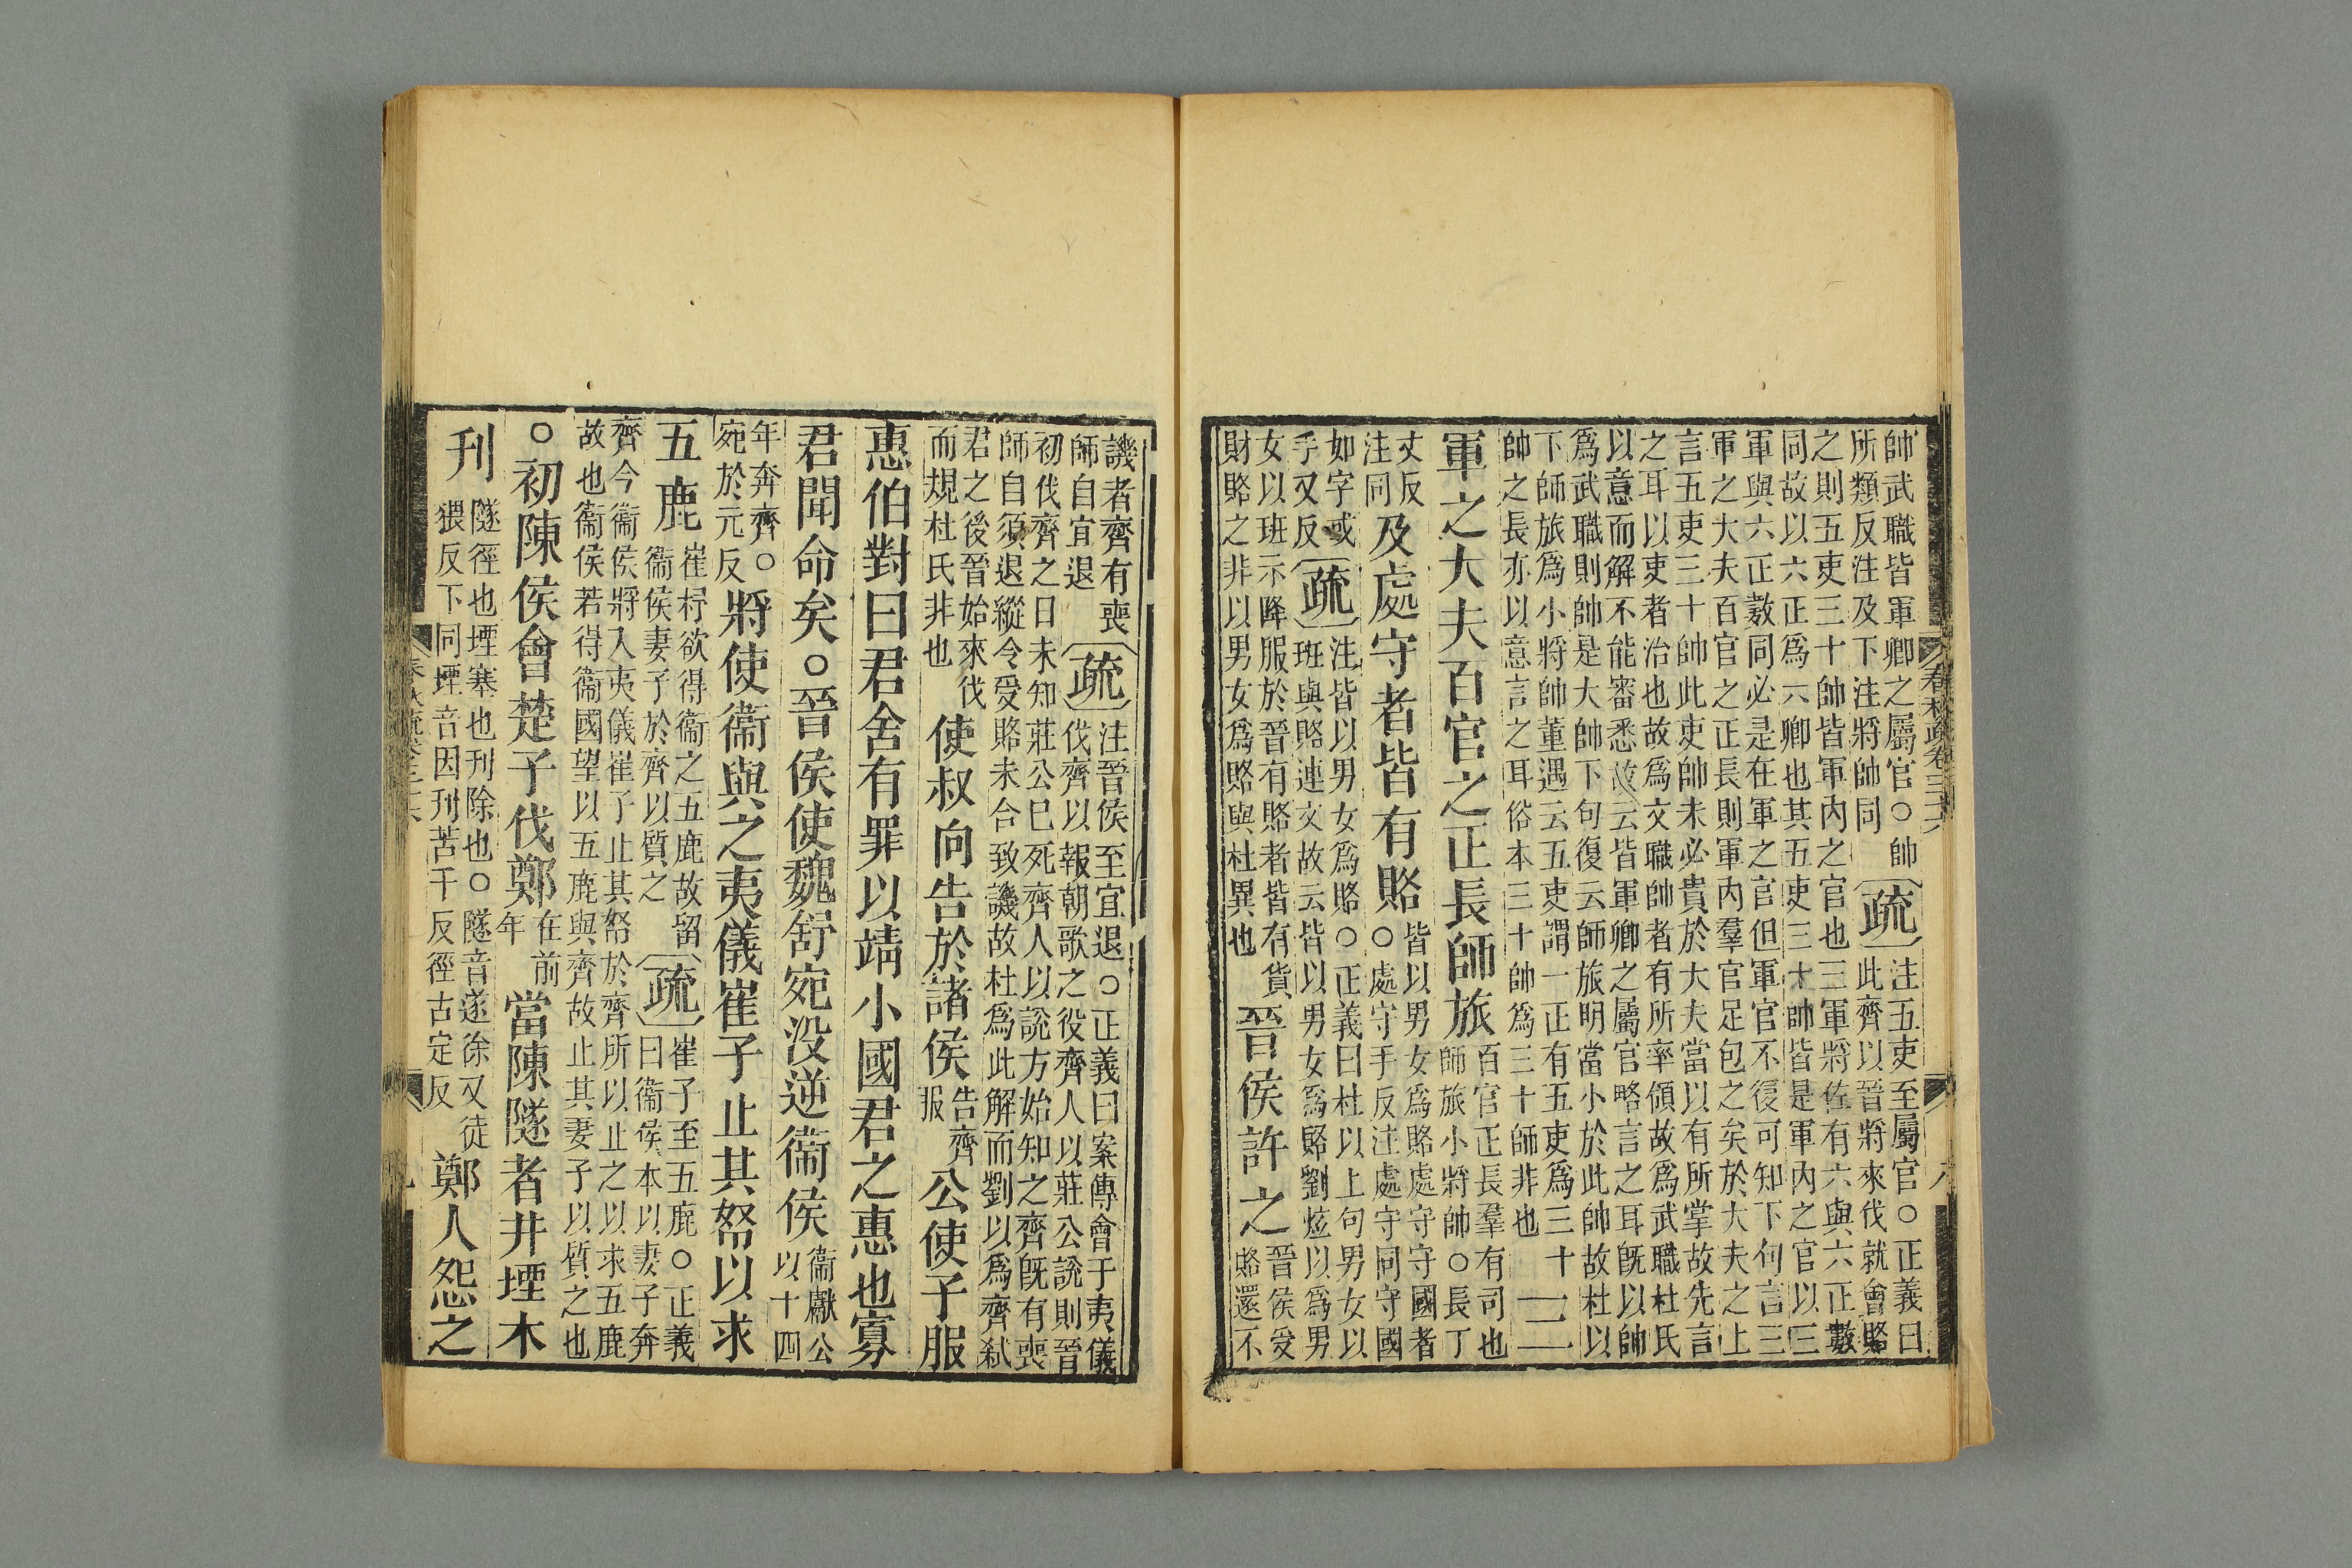 帥武職皆軍卿之屬官○帥
所類反注及下注將帥同
疏
注五吏至屬官○正義曰
此齊以晉將來伐就會賂
之則五吏三十帥皆軍內之官也三軍將佐有六與六正數
同故以六正爲六卿也其五吏三十帥皆是軍內之官以三
軍與六正數同必是在軍之官但軍官不復可知下句言三
軍之大夫百官之正長則軍內羣官足包之矣於大夫之上
言五吏三十帥此吏帥未必貴於大夫當以有所掌故先言
之耳以吏者治也故爲文職帥者有所率領故爲武職杜氏
以意而解不能審悉故云皆軍卿之屬官略言之耳旣以帥
爲武職則帥是大帥下句復云師旅明當小於此帥故杜以
下師旅爲小將帥董遇云五吏謂一正有五吏爲三十
帥之長亦以意言之耳俗本三十帥爲三十師非也
三
軍之大夫百官之正長師旅
百官正長羣有司也
師旅小將帥○長丁
丈反
注同
及處守者皆有賂
皆以男女爲賂處守守國者
○處守手反注處守同守國
如字或
手又反
疏
注皆以男女爲賂○正義曰杜以上句男女以
班與賂連文故云皆以男女爲賂劉炫以爲男
女以班示降服於晉有賂者皆有貨
財賂之非以男女爲賂與杜異也
晉侯許之
晉侯受
賂還不
春秋疏卷三十六
譏者齊有喪
師自宜退
疏
注晉侯至宜退○正義曰案傳會于夷儀
伐齊以報朝歌之役齊人以莊公說則晉
初伐齊之日未知莊公已死齊人以說方始知之齊旣有喪
師自須退縱令受賂未合致譏故杜爲此解而劉以爲齊弒
君之後晉始來伐
而規杜氏非也
使叔向告於諸侯
告齊
服
公使子服
惠伯對曰君舍有罪以靖小國君之惠也寡
君聞命矣○晉侯使魏舒宛沒逆衞侯
衞獻公
以十四
年奔齊○
宛於元反
將使衞與之夷儀崔子止其帑以求
五鹿
崔杼欲得衞之五鹿故留
衞侯妻子於齊以質之
疏
崔子至五鹿○正義
曰衞侯本以妻子奔
齊今衞侯將入夷儀崔子止其帑於齊所以止之以求五鹿
故也衞侯若得衞國望以五鹿與齊故止其妻子以質之也
○初陳侯會楚子伐鄭
在前
年
當陳隧者井堙木
刊
隧徑也堙塞也刊除也○隧音遂徐又徒
猥反下同堙音因刊苦干反徑古定反
鄭人怨之